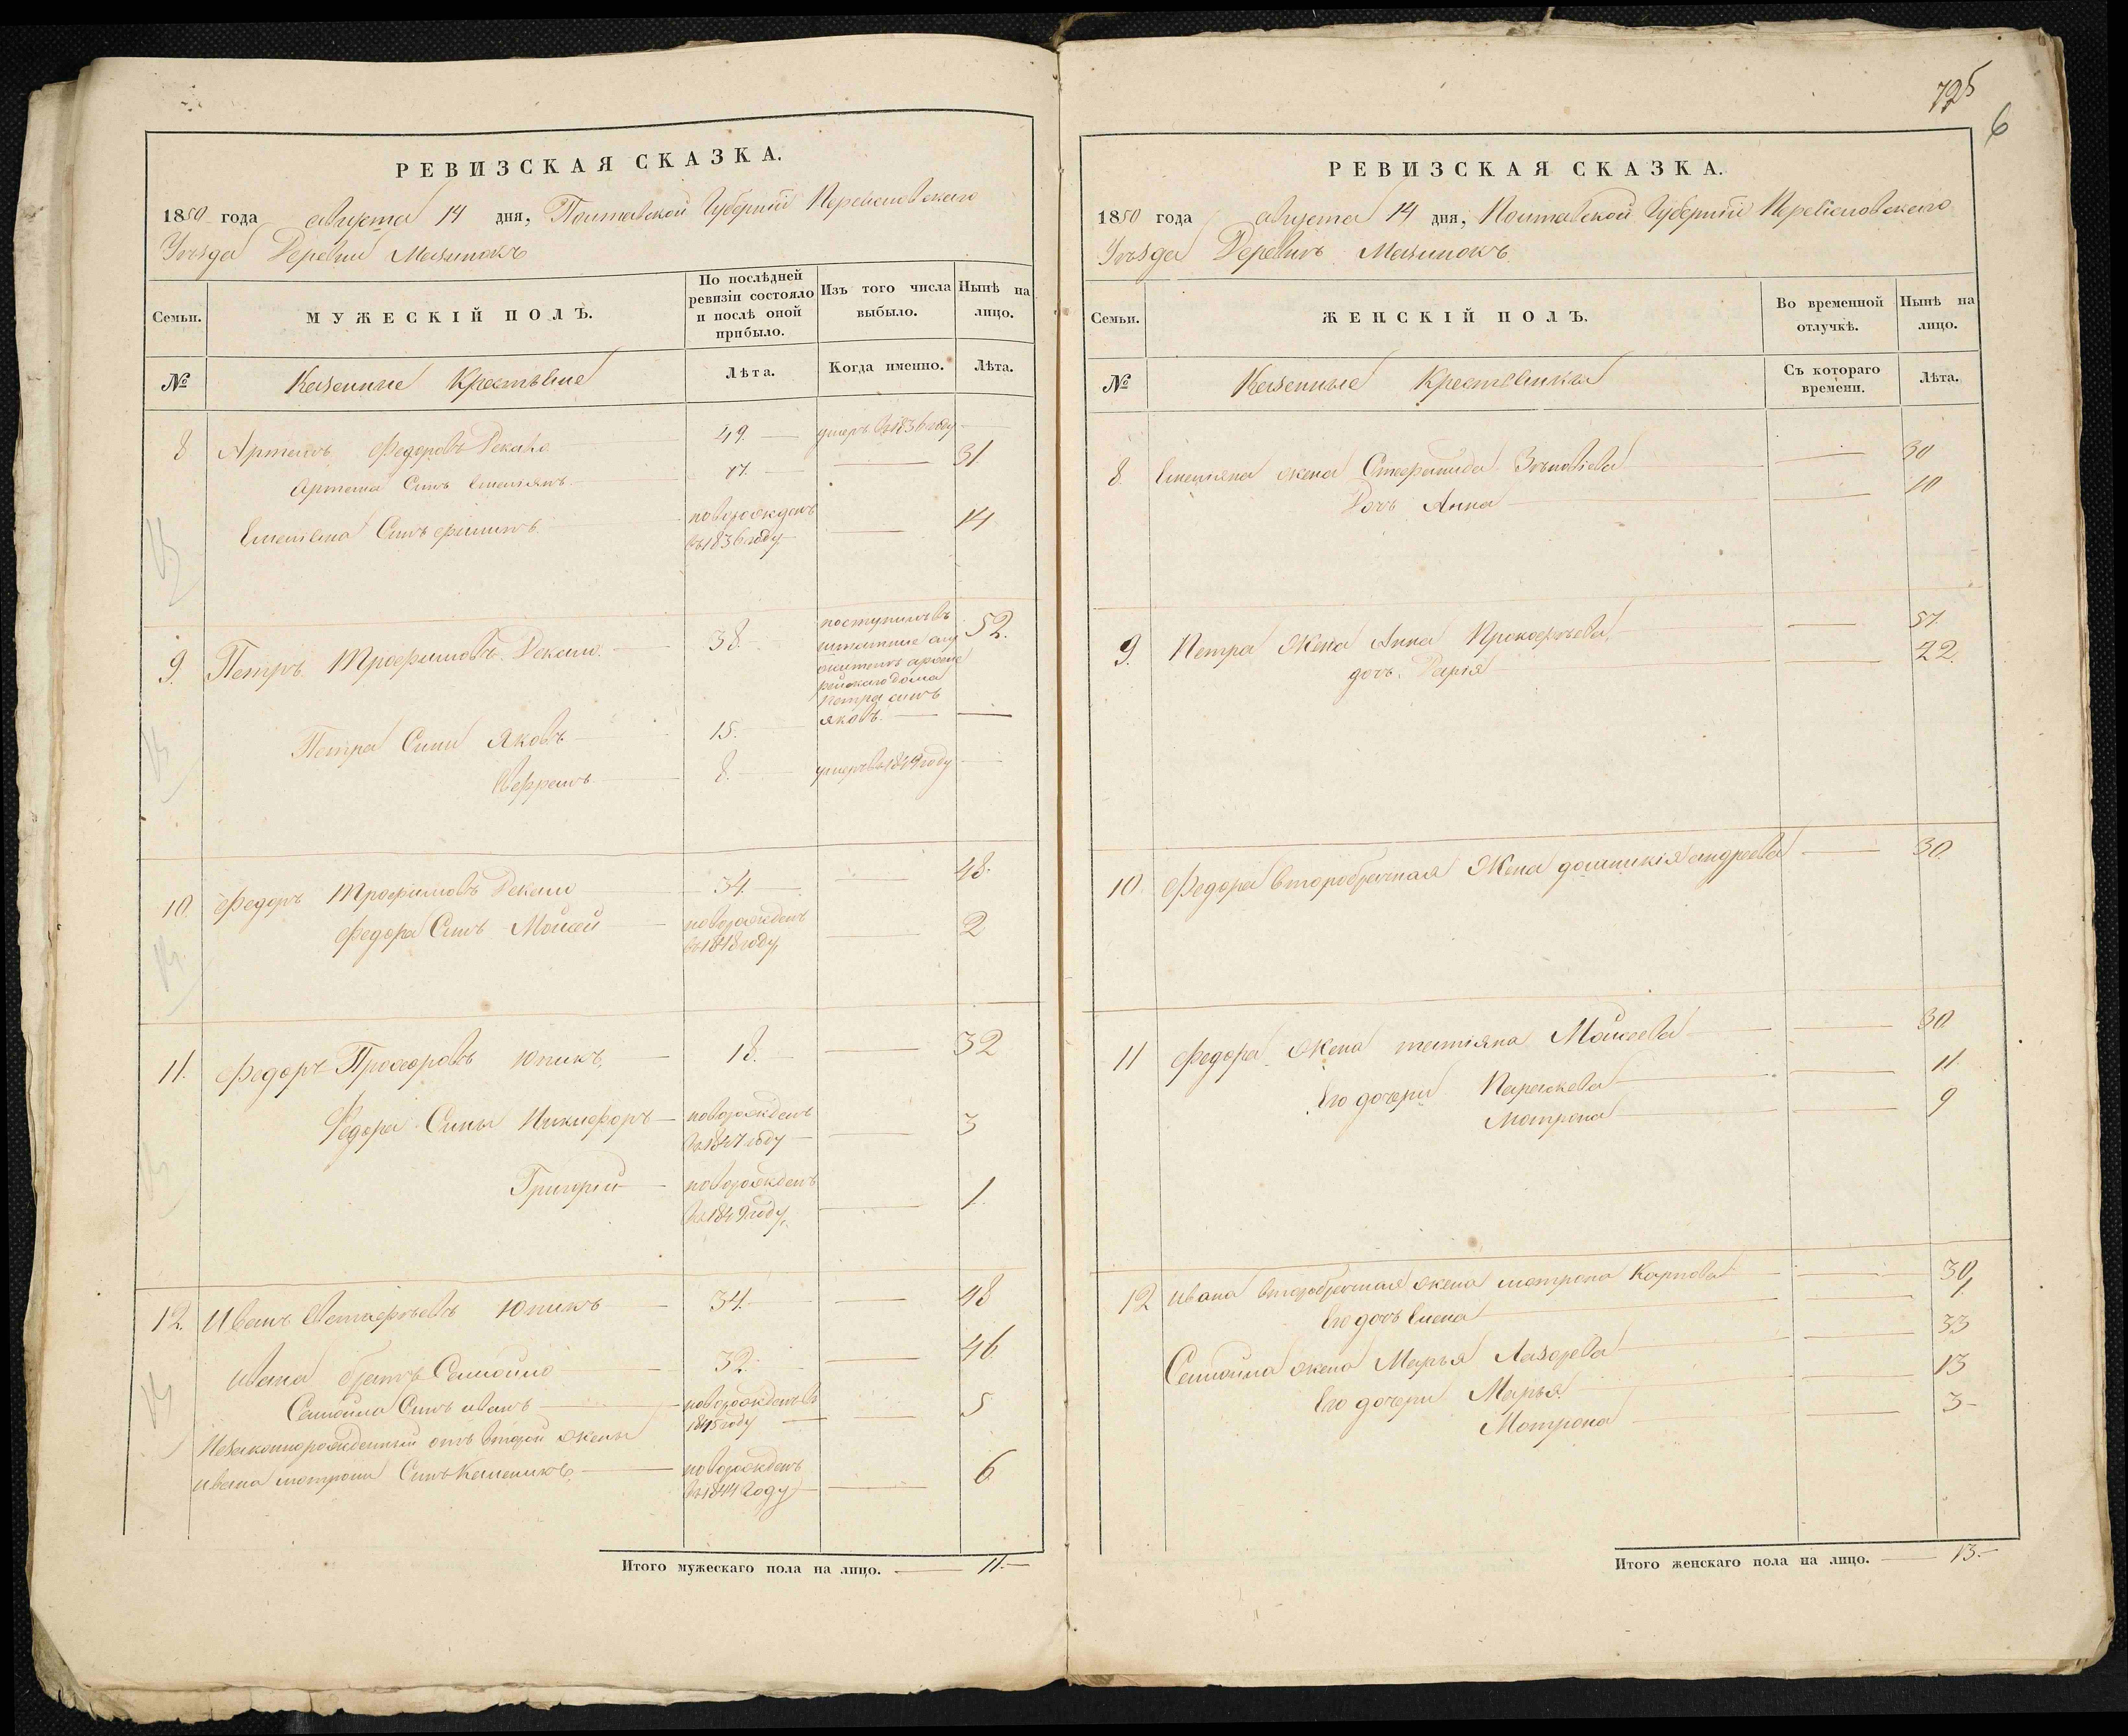 РЕВИЗСКАЯ СКАЗКА.
1850 года августа 14 дня, Полтавской Губерніи Переяславского
Уѣзда Деревни Мазинокъ
Семьи.
МУЖЕСКІЙ ПОЛЪ.
По послѣдней ревизіи состояло и послѣ оной прибыло.
Изъ того числа выбыло.
Нынѣ на лицо.
№
Казенные Крестьяне
Лѣта.
Когда именно.
Лѣта.
8 Артемъ Федоровъ Декало 49. умеръ въ 1836 году
Артема Сынъ Емельянъ 17 31
Емельяна Сынъ Филипъ новорожденъ 14
въ 1836 году
9. Петръ Трофимовъ Декало. 38. 52.
поступилъ въ
штатные слу
жители архіе
рейскаго дома
Петра сынъ
Петра Сыны Яковъ 15. яковъ.
Ефремъ 8. умеръ въ 1849 году
10. Федоръ Трофимовъ Декало 34. 48.
Федора Сынъ Мойсей новорожденъ 2
въ 1848 году
11. Федоръ Прохоровъ Юпикъ, 18. 32
Федора Сыны Никифоръ новорожденъ 3
въ 1847 году
Григорій новорожденъ 1.
въ 1849 году
12. Иванъ Евстафьевъ Юпикъ 34. 48
Ивана братъ Самойло 32. 46.
Самойла Сынъ иванъ новорожденъ въ 5
1845 году
Незаконнорожденный отъ второй жены
ивана мотроны Сынъ новорожденъ 6
въ 1844 году
Итого мужескаго пола на лицо. 11.
725
6
РЕВИЗСКАЯ СКАЗКА.
1850 года августа 14 дня, Полтавской Губерніи Переяславского
Уѣзда Деревнѣ Мазинокъ.
Семьи.
ЖЕНСКІЙ ПОЛЪ.
Во временной отлучкѣ.
Нынѣ на лицо.
№
Казенные Крестьянки
Съ котораго времени.
Лѣта.
8. Емельяна жена Стефанида Зѣновіева 30
Дочь Анна 10
9. Петра Жена Анна Прокофьева, 57.
дочь Дарія 22.
10. Федора второбрачная Жена домникія андреева 30.
11 Федора Жена татіяна Мойсеева 30.
Его дочери Параскева 11.
Мотрона 9
12 ивана второбрачная жена мотрона Карпова 30,
Его дочь Елена
Самойла жена Марья Лазорева 33
Его дочери Марья 13
Мотрона 3
Итого женскаго пола на лицо. 13.